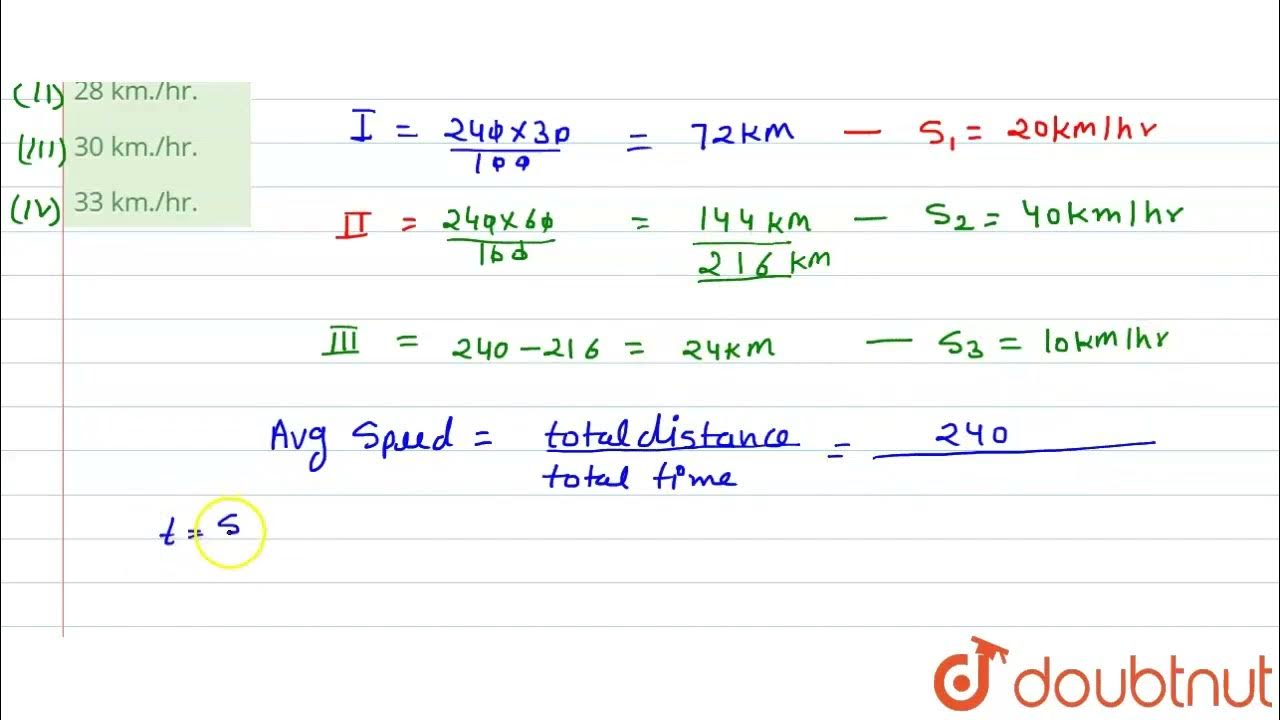 (III) 28 km./hr.
(III) 30 km./hr.
(IV) 33 km./hr.
I = 240 × 30 / 100 = 72 KM — S₁ = 20 km/hr
II = 240 × 60 / 100 = 144 KM — S₂ = 40 km/hr
216 KM
III = 240 – 216 = 24 KM — S₃ = 10 km/hr
Avg Speed = total distance / total time = 240
t = S
doubtnut